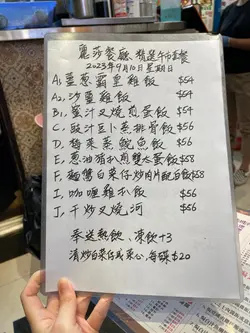 麗莎餐廳 精選午市套餐
2023年9月10日 星期日
A1, 薑蔥霸皇雞飯 $54
A2, 沙薑雞飯 $54
B1, 蜜汁叉燒煎蛋飯 $54
C, 豉汁豆卜蒸排骨飯 $56
D, 梅菜蒸鯇魚飯 $56
E, 蔥油豬扒煎雙太蛋飯 $58
F, 麵醬白菜仔炒肉片配白飯 $58
I, 咖喱雞扒飯 $56
J, 干炒叉燒河 $56
奉送熱飲, 凍飲+3
清炒白菜仔或菜心, 每碟$20